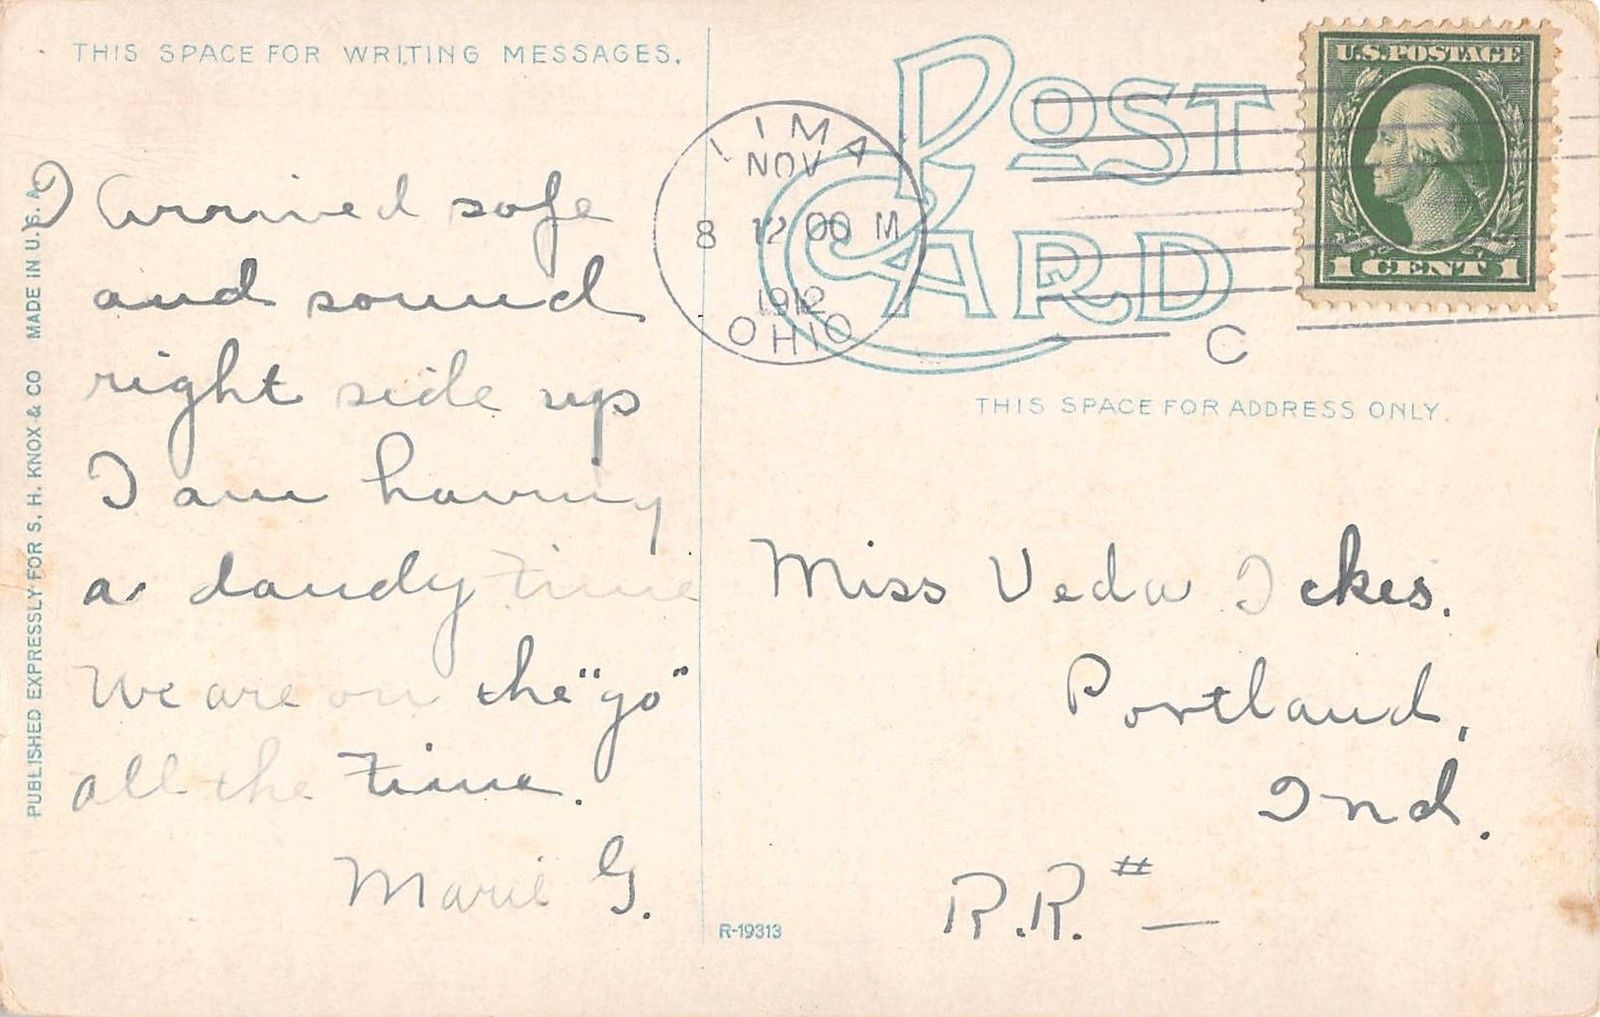 THIS SPACE FOR WRITING MESSAGES.
I arrived safe
and sound
right side up
I am having
a dandy time
We are on the "go"
all the time.
Marie G.
PUBLISHED EXPRESSLY FOR S. H. KNOX & CO MADE IN U. S. A.
R-19313
POST CARD
LIMA
NOV
8 12 00 M
1912
OHIO
C
U.S. POSTAGE
1 CENT 1
THIS SPACE FOR ADDRESS ONLY.
Miss Veda Ickes.
Portland,
Ind.
R.R. # —